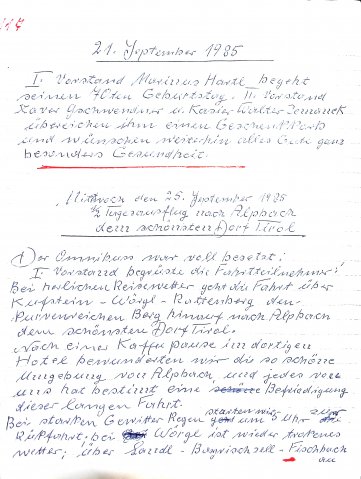 21. September 1985
I. Vorstand Marinus Hartl begeht
seinen 40ten Geburtstag. II. Vorstand
Xaver Gschwendner u. Kasier Walter
übereichen ihm einen Geschenk Korb
und wünschen weiterhin alles Gute ganz
besonders Gesundheit.
Mittwoch den 25. September 1985
1/2 Tagesausflug nach Alpbach
dem schönsten Dorf Tirol
Der Omnibuss war voll besetzt!
I. Vorstand begrüste die Fahrtteilnehmer!
Bei herlichen Reisewetter geht die Fahrt über
Kufstein - Wörgl - Rattenberg den
Kurvenreichen Berg hinauf nach Alpbach
dem schönsten Dorf Tirol.
Nach einer Kaffepause im dortigen
Hotel bewunderten wir die so schöne
Umgebung von Alpbach und jedes von
uns hat bestimt eine Befriedigung
dieser langen Fahrt.
Bei starken Gewitter Regen starten wir um 5 Uhr zur
Rükfahrt; bei Wörgl ist wieder trokenes
wetter; über Landl - Bayrischzell - Fischbach
an